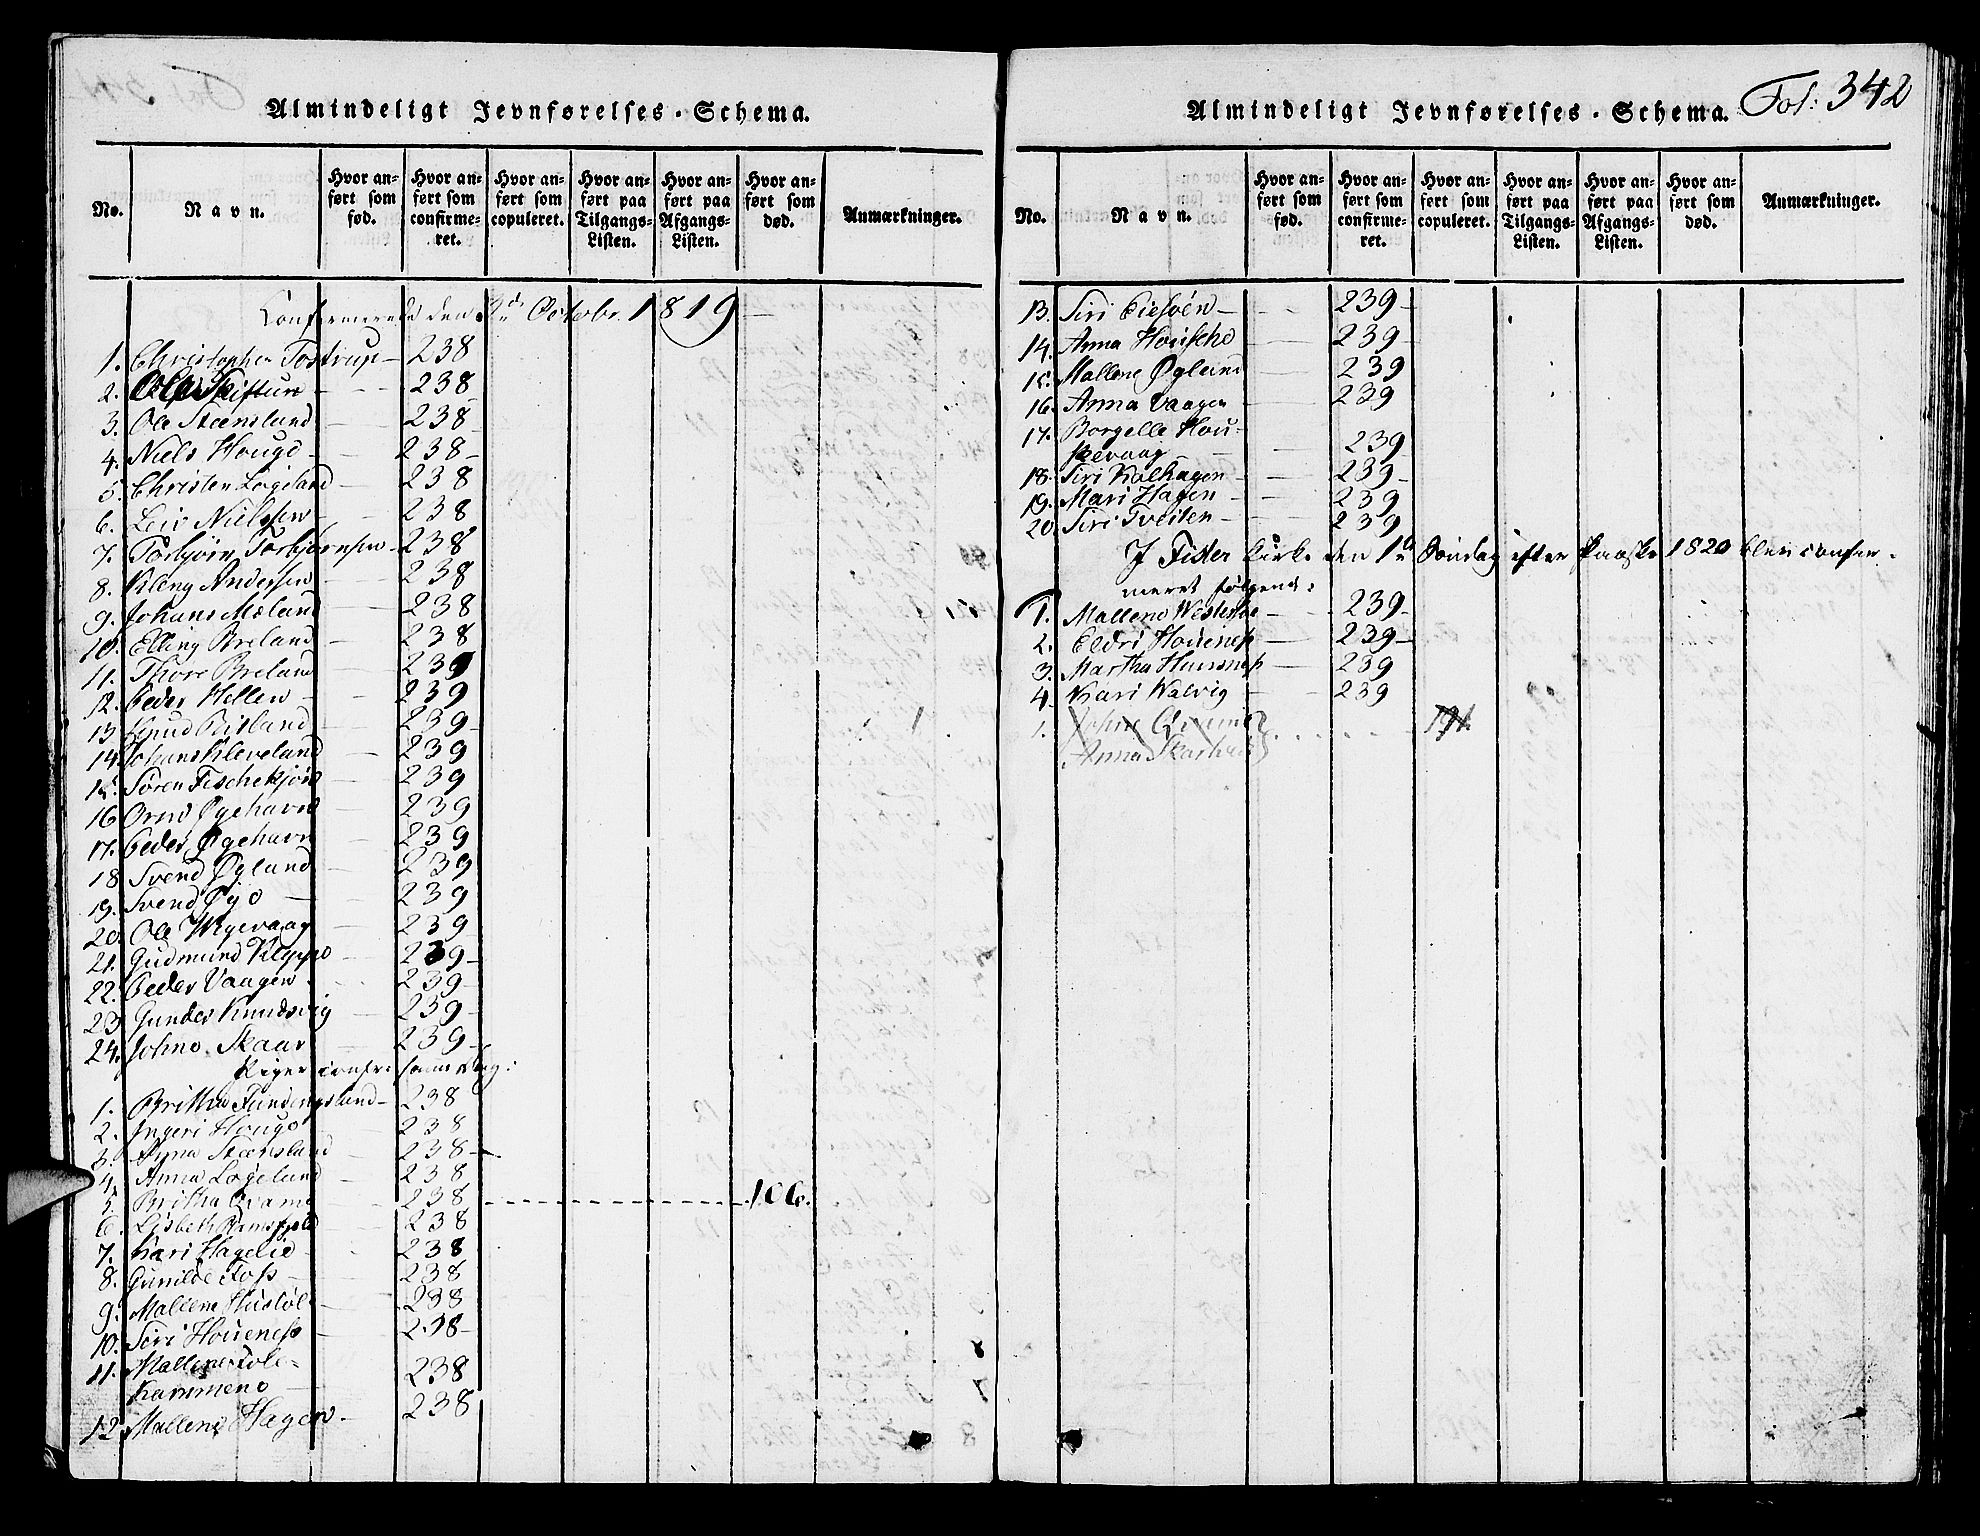 Almindeligt Jevnførelses-Schema.
No.
Navn.
Hvor anført som fød.
Hvor anført som confirmeret.
Hvor anført som copuleret.
Hvor anført paa Tilgangs-Listen.
Hvor anført paa Afgangs-Listen.
Hvor anført som død.
Anmærkninger.
Confirmerede den Octobr. 1819
1. Christopher Tostrup 238
2. Ole 238
3. Ole Steensland 238
4. Niels Houge 238
5. Christen Lögeland 238
6. Leiv Nielssen 238
7. Torbjörn Torbjörnsen 238
8. Kleng Andersen 238
9. Johans Meland 238
10. Elling Breland 238
11. Thore Breland 239
12. Peder Hellen 239
13. Knud 239
14. Johans Kleveland 239
15. Sören Fischekjön 239
16. Øgehavn 239
17. Peder Øgehavn 239
18. Svend Øgland 239
19. Svend Øije 239
20. Ole 239
21. Gudmund Kleppe 239
22. Peder Vaagen 239
23. Gunder Knudsvig 239
24. Johne Skaar 239
Piger confr: samme Dag:
1. Britha Tundingsland 238
2. Ingeri Houge 238
3. Anna Steensland 238
4. Anna Lögeland 238
5. Britha 238 106.
6. Lisbeth 238
7. Kari Hagelie 238
8. Gunilde Foss 238
9. Mallene 238
10. Siri Houeness 238
11. Mallene Tole-
kammene 238
12. Mallene Hagen 238
Almindeligt Jevnførelses-Schema.
Fol: 342
No.
Navn.
Hvor anført som fød.
Hvor anført som confirmeret.
Hvor anført som copuleret.
Hvor anført paa Tilgangs-Listen.
Hvor anført paa Afgangs-Listen.
Hvor anført som død.
Anmærkninger.
13. Siri 239
14. Anna 239
15. Mallene Øgland 239
16. Anna Vaagen 239
17. Borgelle Hou-
skevaag 239
18. Siri Kalhagen 239
19. Mari Hagen 239
20. Siri Tveiten 239
I Fister Kirke den 1te Söndag efter Paaske 1820 blev confir-
meret følgende:
1. Mallene 239
2. Eldri Houeness 239
3. Martha 239
4. Kari Walvig 239
1. Johne 191.
Anna